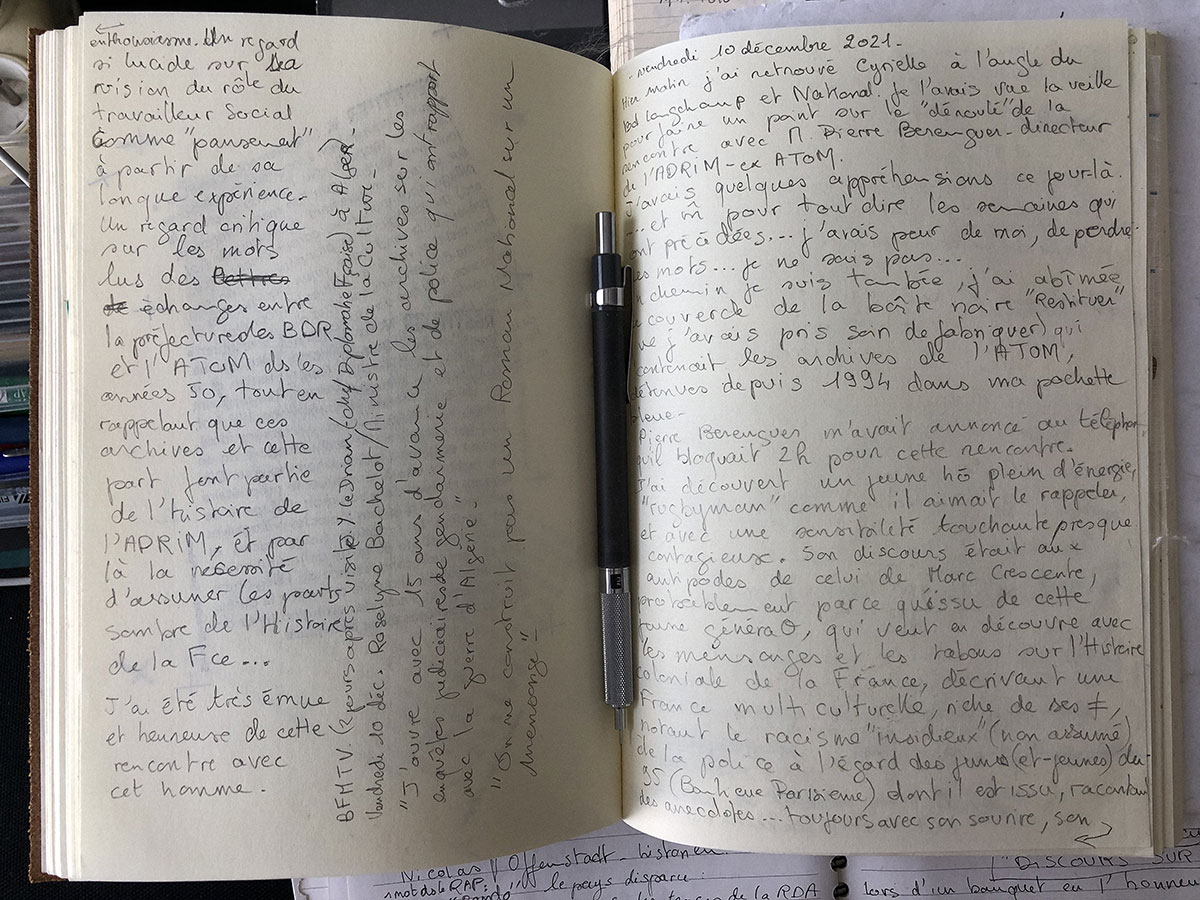 enthousiasme. Un regard
si lucide sur sa
vision du rôle du
travailleur Social
comme "pansement"
à partir de sa
longue expérience.
Un regard critique
sur les mots
lus des lettres
de échanges entre
la préfecture des BDR
et l'ATOM ds les
années 50, tout en
rappelant que ces
archives et cette
part font partie
de l'histoire de
l'ADRIM, et par
là la nécessité
d'assumer les parts
sombre de l'Histoire
de la Fce...
J'ai été très émue
et heureuse de cette
rencontre avec
cet homme.
BFMTV. (2 jours après visite J.Y. LeDrian (chef Diplomatie Fçaise) à Alger).
Vendredi 10 déc. Roselyne Bachelot/Ministre de la Culture.
"J'ouvre avec 15 ans d'avance les archives sur les
enquêtes judiciaires de gendarmerie et de police qui ont rapport
avec la guerre d'Algérie."
"On ne construit pas un Roman National sur un
mensonge"
- vendredi 10 décembre 2021 -
Hier matin j'ai retrouvé Cyrielle à l'angle du
Bd Longchamp et National. Je l'avais vue la veille
pour faire un point sur le "déroulé" de la
rencontre avec M. Pierre Berenguer - directeur
de l'ADRIM - ex ATOM.
J'avais quelques appréhensions ce jour-là.
... et m̂ pour tout dire les semaines qui
ont précédées... j'avais peur de moi, de perdre
mes mots... je ne sais pas...
En chemin je suis tombée, j'ai abîmée
le couvercle de la boîte noire "Restituer"
que j'avais pris soin de fabriquer) qui
contenait les archives de l'ATOM,
détenues depuis 1994 dans ma pochette
bleue.
Pierre Berenguer m'avait annoncé au téléphone
qu'il bloquait 2h pour cette rencontre.
J'ai découvert un jeune hô plein d'énergie,
"rugbyman" comme il aimait le rappeler,
et avec une sensibilité touchante presque
contagieuse. Son discours était aux
antipodes de celui de Marc Crescente,
probablement parce qu'issu de cette
jeune généraθ, qui veut en découvre avec
les mensonges et les tabous sur l'Histoire
coloniale de la France, décrivant une
France multiculturelle, riche de ses ≠,
notant le racisme "insidieux" (non assumé)
de la police à l'égard des jeunes (et - jeunes) du
95 (Banlieue Parisienne) dont il est issu, racontant
des anecdotes... toujours avec son sourire, son
Nicolas Offenstadt - historien
le pays disparu
de la RDA
"DISCOURS SUR
lors d'un banquet en l'honneur